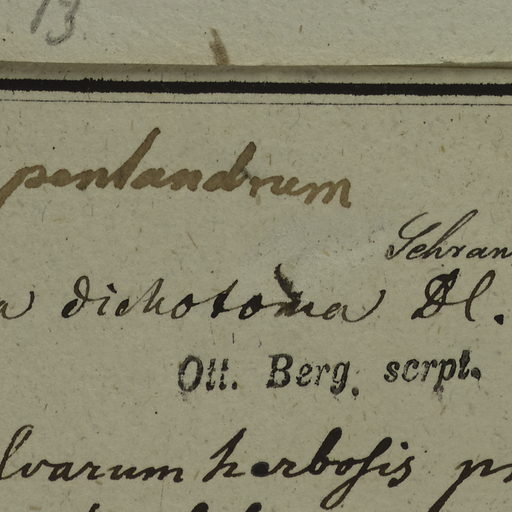 13
pentandrum
Schran
a dichotoma Dl.
Ott. Berg. scrpt.
lvarum herbosis pr